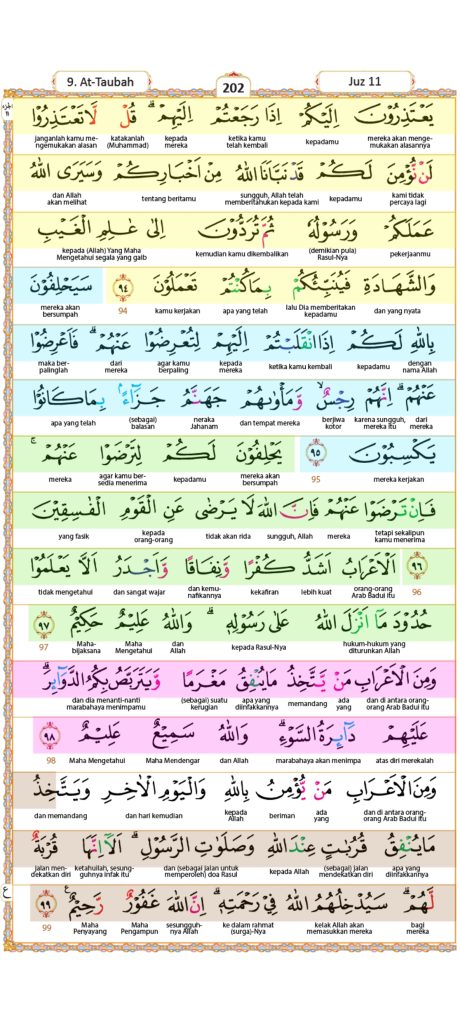 9. At-Taubah
202
Juz 11
الجزء ١١
يَعْتَذِرُوْنَ اِلَيْكُمْ اِذَا رَجَعْتُمْ اِلَيْهِمْ ۗ قُلْ لَّا تَعْتَذِرُوْا
mereka akan mengemukakan alasannya kepadamu ketika kamu telah kembali kepada mereka katakanlah (Muhammad) janganlah kamu mengemukakan alasan
لَنْ نُّؤْمِنَ لَكُمْ قَدْ نَبَّاَنَا اللّٰهُ مِنْ اَخْبَارِكُمْ وَسَيَرَى اللّٰهُ
kami tidak percaya lagi kepadamu sungguh, Allah telah memberitahukan kepada kami tentang beritamu dan Allah akan melihat
عَمَلَكُمْ وَرَسُوْلُهٗ ثُمَّ تُرَدُّوْنَ اِلٰى عٰلِمِ الْغَيْبِ
pekerjaanmu (demikian pula) Rasul-Nya kemudian kamu dikembalikan kepada (Allah) Yang Maha Mengetahui segala yang gaib
وَالشَّهَادَةِ فَيُنَبِّئُكُمْ بِمَا كُنْتُمْ تَعْمَلُوْنَ ٩٤ سَيَحْلِفُوْنَ
dan yang nyata lalu Dia memberitakan kepadamu apa yang telah kamu kerjakan 94 mereka akan bersumpah
بِاللّٰهِ لَكُمْ اِذَا انْقَلَبْتُمْ اِلَيْهِمْ لِتُعْرِضُوْا عَنْهُمْ ۗ فَاَعْرِضُوْا
dengan nama Allah kepadamu ketika kamu kembali kepada mereka agar kamu berpaling dari mereka maka berpalinglah
عَنْهُمْ ۗ اِنَّهُمْ رِجْسٌ وَّمَأْوٰىهُمْ جَهَنَّمُ جَزَاۤءً ۢبِمَا كَانُوْا
dari mereka karena sungguh, mereka itu berjiwa kotor dan tempat mereka neraka Jahanam (sebagai) balasan apa yang telah
يَكْسِبُوْنَ ٩٥ يَحْلِفُوْنَ لَكُمْ لِتَرْضَوْا عَنْهُمْ ۚ
mereka kerjakan 95 mereka akan bersumpah kepadamu agar kamu bersedia menerima mereka
فَاِنْ تَرْضَوْا عَنْهُمْ فَاِنَّ اللّٰهَ لَا يَرْضٰى عَنِ الْقَوْمِ الْفٰسِقِيْنَ
tetapi sekalipun kamu menerima mereka sungguh, Allah tidak akan rida kepada orang-orang yang fasik
٩٦ اَلْاَعْرَابُ اَشَدُّ كُفْرًا وَّنِفَاقًا وَّاَجْدَرُ اَلَّا يَعْلَمُوْا
96 orang-orang Arab Badui itu lebih kuat kekafiran dan kemunafikannya dan sangat wajar tidak mengetahui
حُدُوْدَ مَآ اَنْزَلَ اللّٰهُ عَلٰى رَسُوْلِهٖ ۗ وَاللّٰهُ عَلِيْمٌ حَكِيْمٌ ٩٧
hukum-hukum yang diturunkan Allah kepada Rasul-Nya dan Allah Maha Mengetahui Mahabijaksana 97
وَمِنَ الْاَعْرَابِ مَنْ يَّتَّخِذُ مَا يُنْفِقُ مَغْرَمًا وَّيَتَرَبَّصُ بِكُمُ الدَّوَاۤىِٕرَ ۗ
dan di antara orang-orang Arab Badui itu ada yang memandang apa yang diinfakkannya (sebagai) suatu kerugian dan dia menanti-nanti marabahaya menimpamu
عَلَيْهِمْ دَاۤىِٕرَةُ السَّوْءِ ۗ وَاللّٰهُ سَمِيْعٌ عَلِيْمٌ ٩٨
atas diri merekalah marabahaya akan menimpa dan Allah Maha Mendengar Maha Mengetahui 98
وَمِنَ الْاَعْرَابِ مَنْ يُّؤْمِنُ بِاللّٰهِ وَالْيَوْمِ الْاٰخِرِ وَيَتَّخِذُ
dan di antara orang-orang Arab Badui itu ada yang beriman kepada Allah dan hari kemudian dan memandang
مَا يُنْفِقُ قُرُبٰتٍ عِنْدَ اللّٰهِ وَصَلَوٰتِ الرَّسُوْلِ ۗ اَلَآ اِنَّهَا قُرْبَةٌ
apa yang diinfakkannya (sebagai) jalan mendekatkan diri kepada Allah dan (sebagai jalan untuk memperoleh) doa Rasul ketahuilah, sesungguhnya infak itu jalan mendekatkan diri
لَّهُمْ ۗ سَيُدْخِلُهُمُ اللّٰهُ فِيْ رَحْمَتِهٖ ۗ اِنَّ اللّٰهَ غَفُوْرٌ رَّحِيْمٌ ٩٩ ع
bagi mereka kelak Allah akan memasukkan mereka ke dalam rahmat (surga)-Nya sesungguhnya Allah Maha Pengampun Maha Penyayang 99